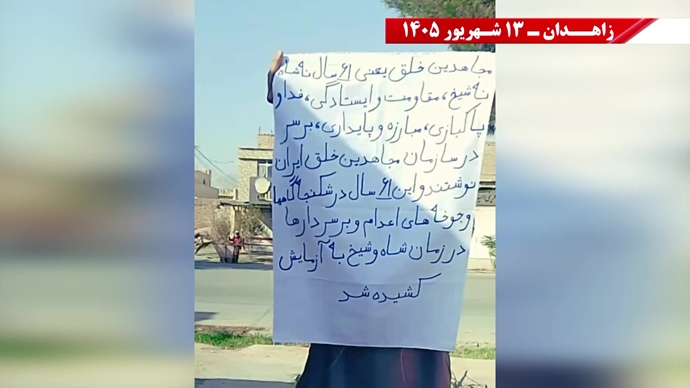 زاهدان - ۱۳ شهریور ۱۴۰۵
مجاهدین خلق یعنی ۶۱ سال نه شاه
نه شیخ، مقاومت و ایستادگی، فدا و
پاکبازی، مبارزه و پایداری، بر سر
در سازمان مجاهدین خلق ایران
نوشتند و این ۶۱ سال در شکنجه گاهها
و جوخه های اعدام و بر سر دارها
در زمان شاه و شیخ به آزمایش
کشیده شد